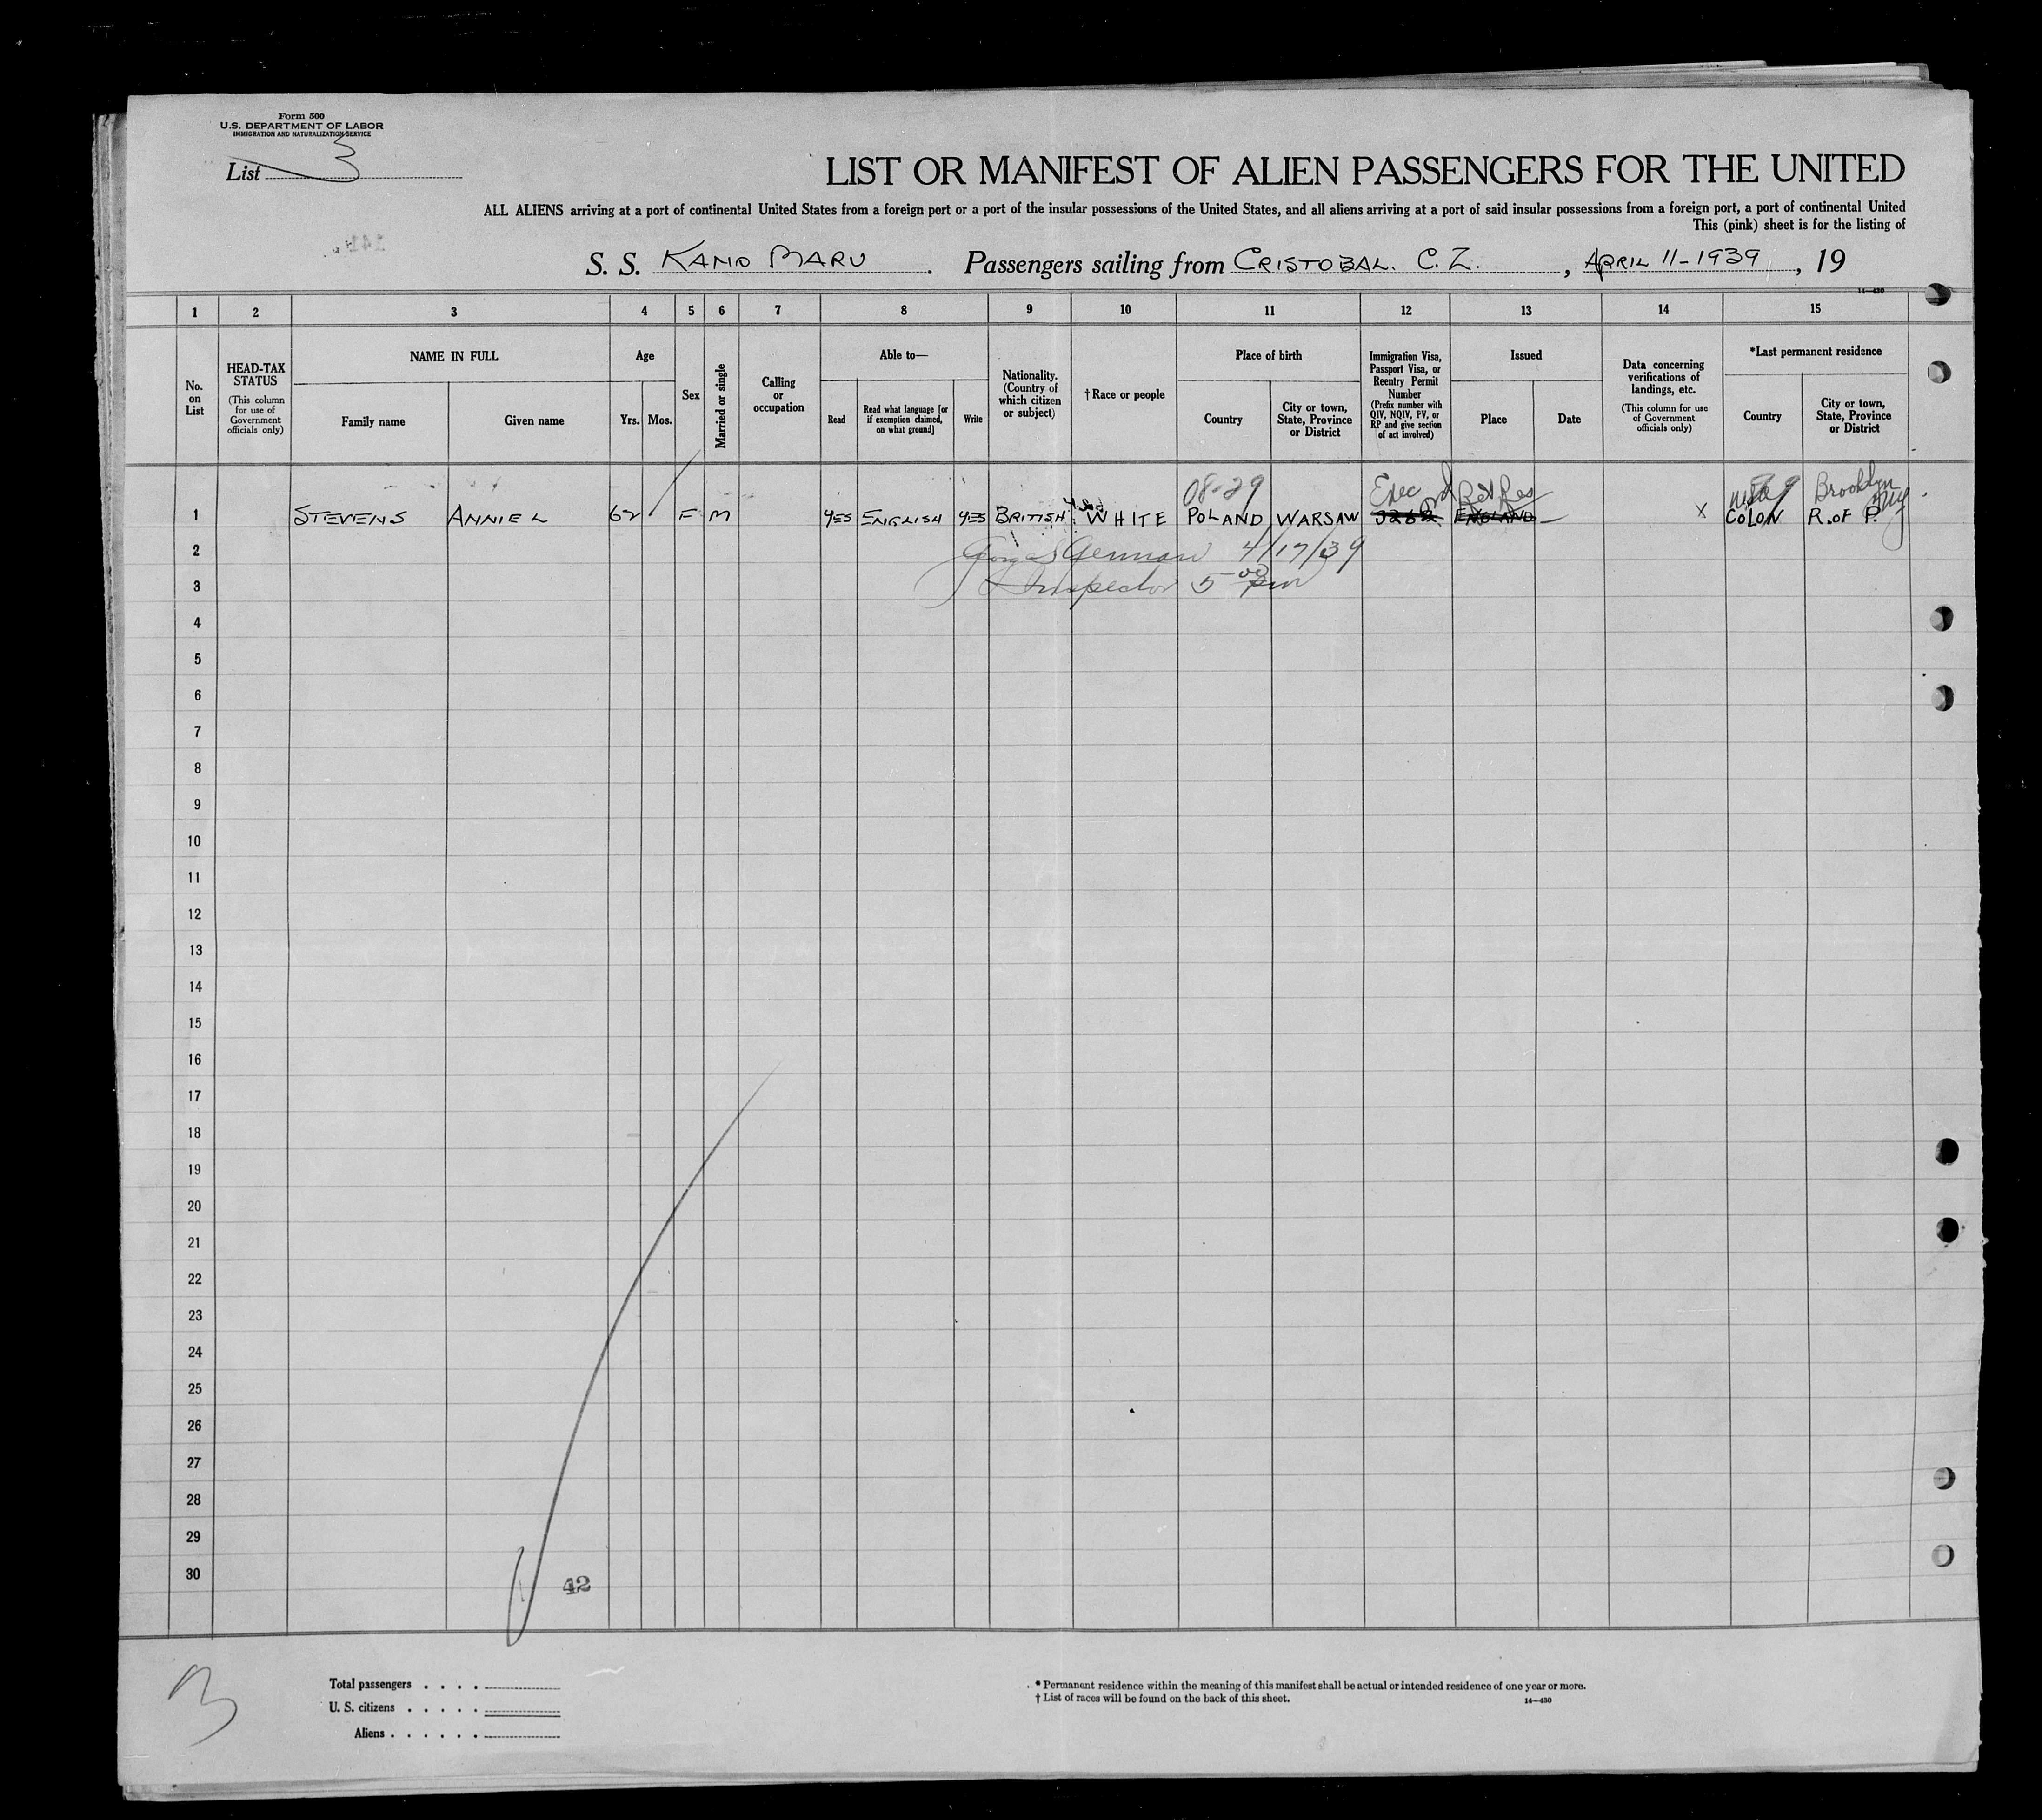 Form 500
U.S. DEPARTMENT OF LABOR
IMMIGRATION AND NATURALIZATION SERVICE
List 3
LIST OR MANIFEST OF ALIEN PASSENGERS FOR THE UNITED
ALL ALIENS arriving at a port of continental United States from a foreign port or a port of the insular possessions of the United States, and all aliens arriving at a port of said insular possessions from a foreign port, a port of continental United
This (pink) sheet is for the listing of
S. S. KAMO MARU. Passengers sailing from CRISTOBAL. C. Z., APRIL 11-1939, 19
14—430
1 2 3 4 5 6 7 8 9 10 11 12 13 14 15
No. on List
HEAD-TAX STATUS
(This column for use of Government officials only)
NAME IN FULL
Family name
Given name
Age
Yrs.
Mos.
Sex
Married or single
Calling or occupation
Able to—
Read
Read what language [or if exemption claimed, on what ground]
Write
Nationality. (Country of which citizen or subject)
† Race or people
Place of birth
Country
City or town, State, Province or District
Immigration Visa, Passport Visa, or Reentry Permit Number
(Prefix number with QIV, NQIV, PV, or RP and give section of act involved)
Issued
Place
Date
Data concerning verifications of landings, etc.
(This column for use of Government officials only)
*Last permanent residence
Country
City or town, State, Province or District
08-29 Exec Ret Res Brooklyn NY
1 STEVENS ANNIE L 62 F M YES ENGLISH YES BRITISH WHITE POLAND WARSAW ENGLAND X COLON R. of P.
2 German 4/17/39
3 Inspector 5 00 pm
4
5
6
7
8
9
10
11
12
13
14
15
16
17
18
19
20
21
22
23
24
25
26
27
28
29
30
42
3
Total passengers
U. S. citizens
Aliens
* Permanent residence within the meaning of this manifest shall be actual or intended residence of one year or more.
† List of races will be found on the back of this sheet.
14—430